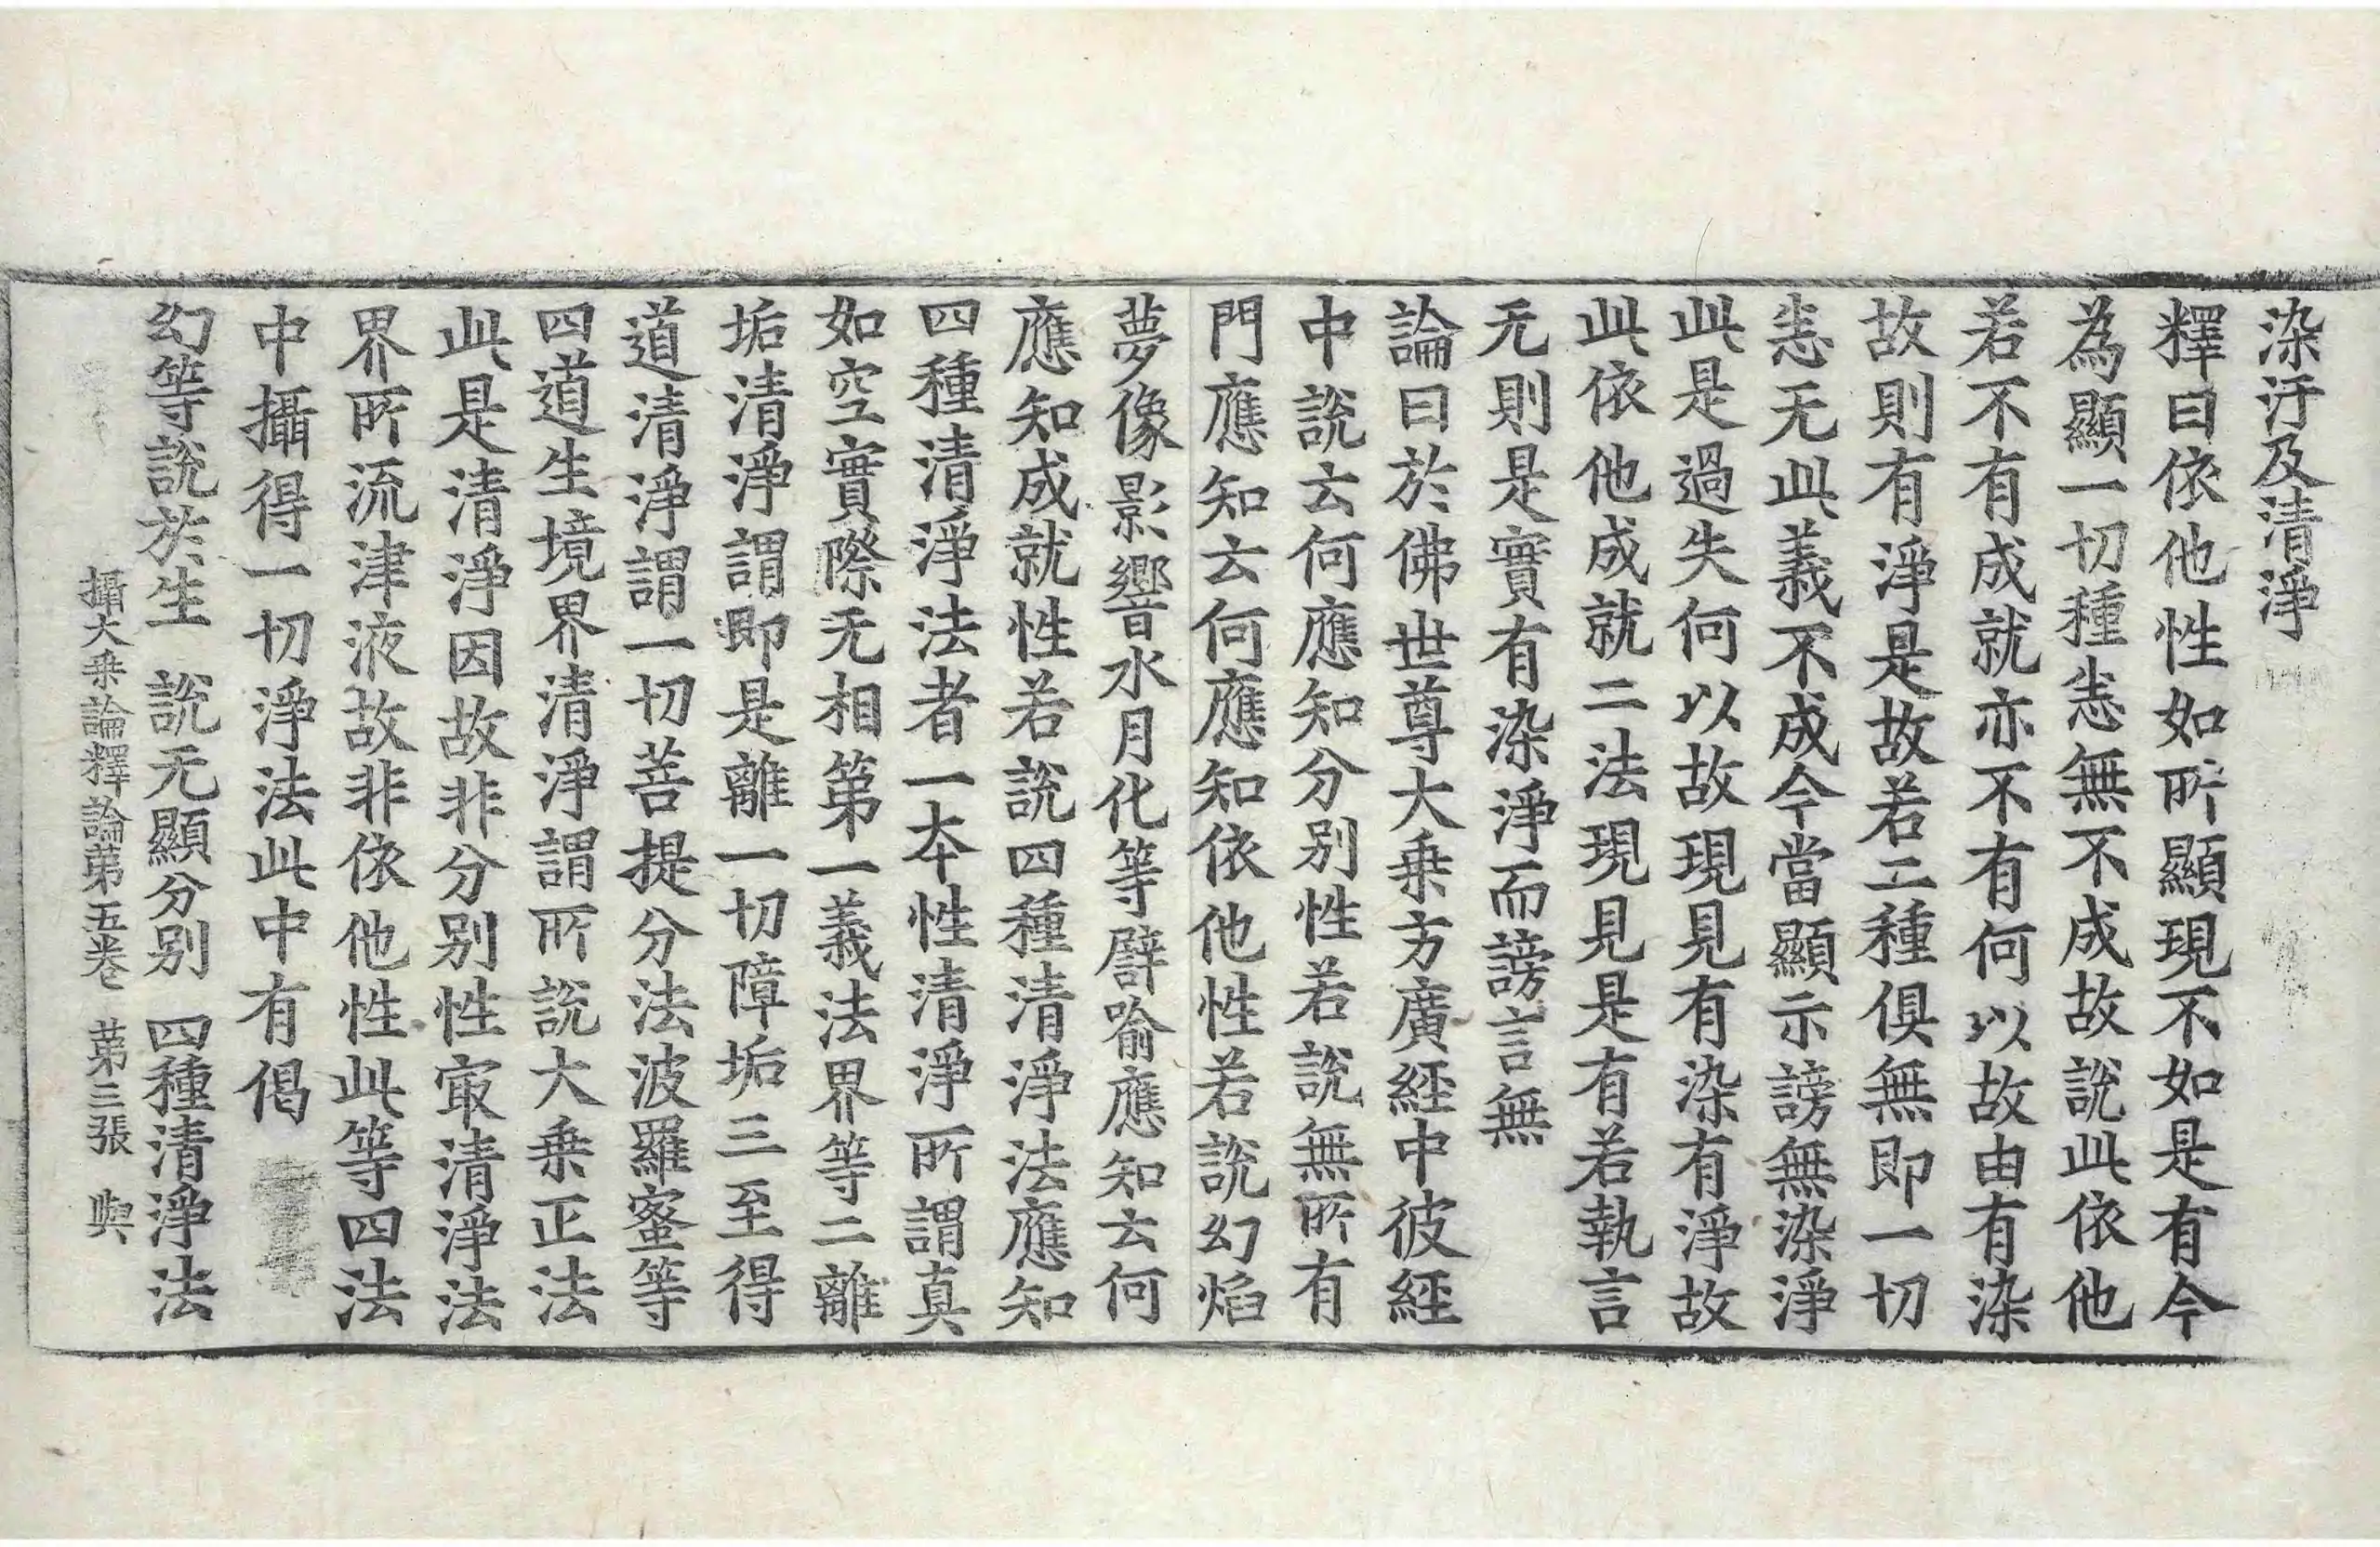 染汙及清淨
釋曰依他性如所顯現不如是有今
為顯一切種恚無不成故說此依他
若不有成就亦不有何以故由有染
故則有淨是故若二種俱無即一切
恚无此義不成今當顯示謗無染淨
此是過失何以故現見有染有淨故
此依他成就二法現見是有若執言
无則是實有染淨而謗言無
論曰於佛世尊大乗方廣經中彼經
中說云何應知分別性若說無所有
門應知云何應知依他性若說幻焰
夢像影響水月化等譬喻應知云何
應知成就性若說四種清淨法應知
四種清淨法者一本性清淨所謂真
如空實際无相第一義法界等二離
垢清淨謂即是離一切障垢三至得
道清淨謂一切菩提分法波羅蜜等
四道生境界清淨謂所說大乗正法
此是清淨因故非分別性㝡清淨法
界所流津液故非依他性此等四法
中攝得一切淨法此中有偈
幻等說於生　說无顯分別　四種清淨法
攝大乗論釋論第五卷　第三張　輿